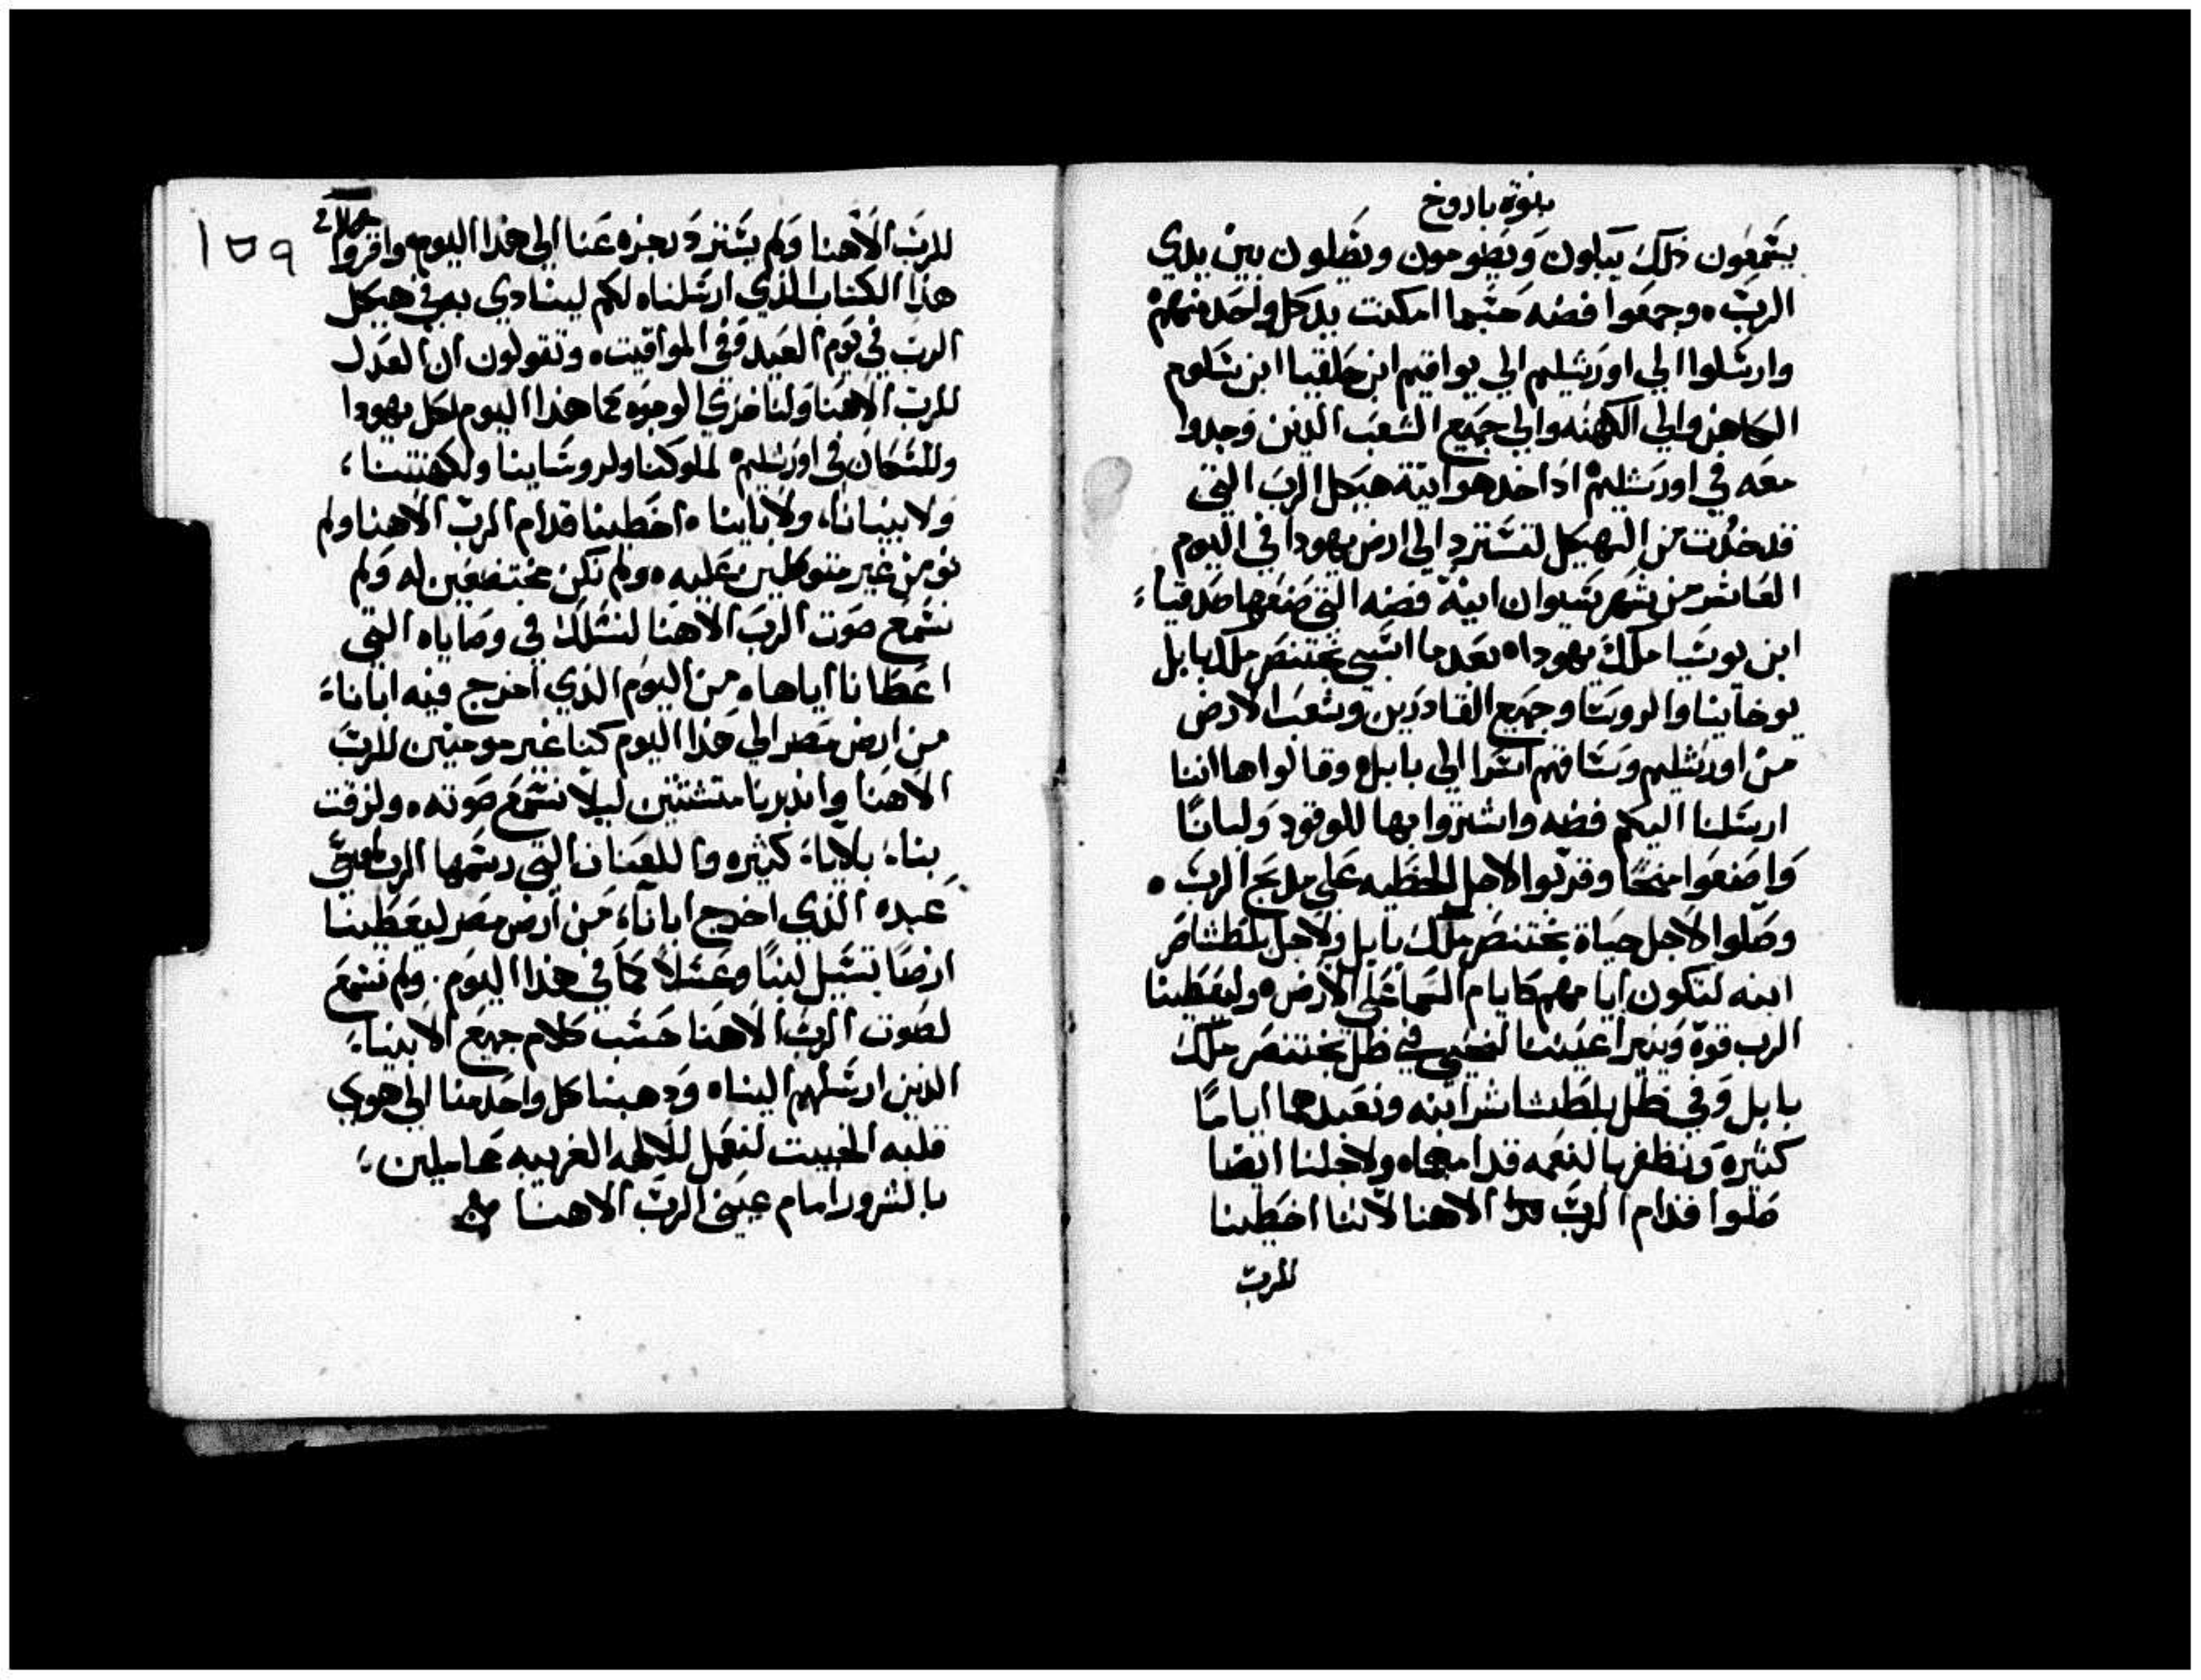 بنوة باروخ
يسمعون ذلك يبكون ويصومون ويصلون بين يدي
الرب ٥ وجمعوا فضه حسبما امكنت يد كل واحد منهم
وارسلوا الي اورشليم الي يواقيم ابن حلقيا ابن شلوم
الكاهن والي الكهنه والي جميع الشعب الذين وجدوا
معه في اورشليم اذ اخذ هو انية هيكل الرب التي
قد خذت من الهيكل لتسترد الي ارض يهودا في اليوم
العاشر من شهر سيوان انية فضه التي صنعها صدقيا
ابن يوشيا ملك يهودا ٥ بعد ما اسبي بختنصر ملك بابل
يوخانيا والروسا وجميع القادرين وشعب الارض
من اورشليم وساقهم اسرا الي بابل ٥ وقالوا ها اننا
ارسلنا اليكم فضه واشتروا بها للوقود ولبانًا
واصنعوا منحًا وقربوا لاجل الخطيه علي مدبح الرب ٥
وصلوا لاجل حياة بختنصر ملك بابل ولاجل بلطشاصر
ابنه لتكون ايامهم كايام السما علي الارض ٥ وليعطينا
الرب قوة وينير اعيننا لنحيي في ظل بختنصر ملك
بابل وفي ظل بلطشاشر ابنه ونعبدهما ايامًا
كثيرة ونظفر بالنعمه قدامهما ٥ ولاجلنا ايضا
صلوا قدام الرب الاهنا لاننا اخطينا
للرب
١٥٩
للرب الاهنا ولم يسترد رجزه عنا الي هذا اليوم واقروا
هذا الكتاب الذي ارسلناه لكم لينادي به في هيكل
الرب في يوم العيد وفي المواقيت ٥ وتقولون ان العدل
للرب الاهنا ولنا خزي الوجوه كما هذا اليوم لكل يهودا
وللسكان في اورشليم ٥ لملوكنا ولروساينا ولكهنتنا
ولانبيانا ولابائنا ٥ اخطينا قدام الرب الاهنا ولم
نومن غير متوكلين عليه ٥ ولم نكن مختضعين له ولم
نسمع صوت الرب الاهنا لنسلك في وصاياه التي
اعطانا اياها ٥ من اليوم الذي اخرج فيه ابانا
من ارض مصر الي هذا اليوم كنا غير مومنين للرب
الاهنا وانذرنا متشتتين ليلا نسمع صوته ٥ ولزقت
بنا بلايا كثيره واللعنات التي رسمها الرب لموسي
عبده الذي اخرج ابانا من ارض مصر ليعطينا
ارضًا تسيل لبنًا وعسلاً كما في هذا اليوم ولم نسمع
لصوت الرب الاهنا حسب كلام جميع الانبيا
الذين ارسلهم الينا ٥ وذهبنا كل واحد منا الي هوي
قلبه الخبيت لنعمل للالهه الغريبه عاملين
بالشرور امام عيني الرب الاهنا